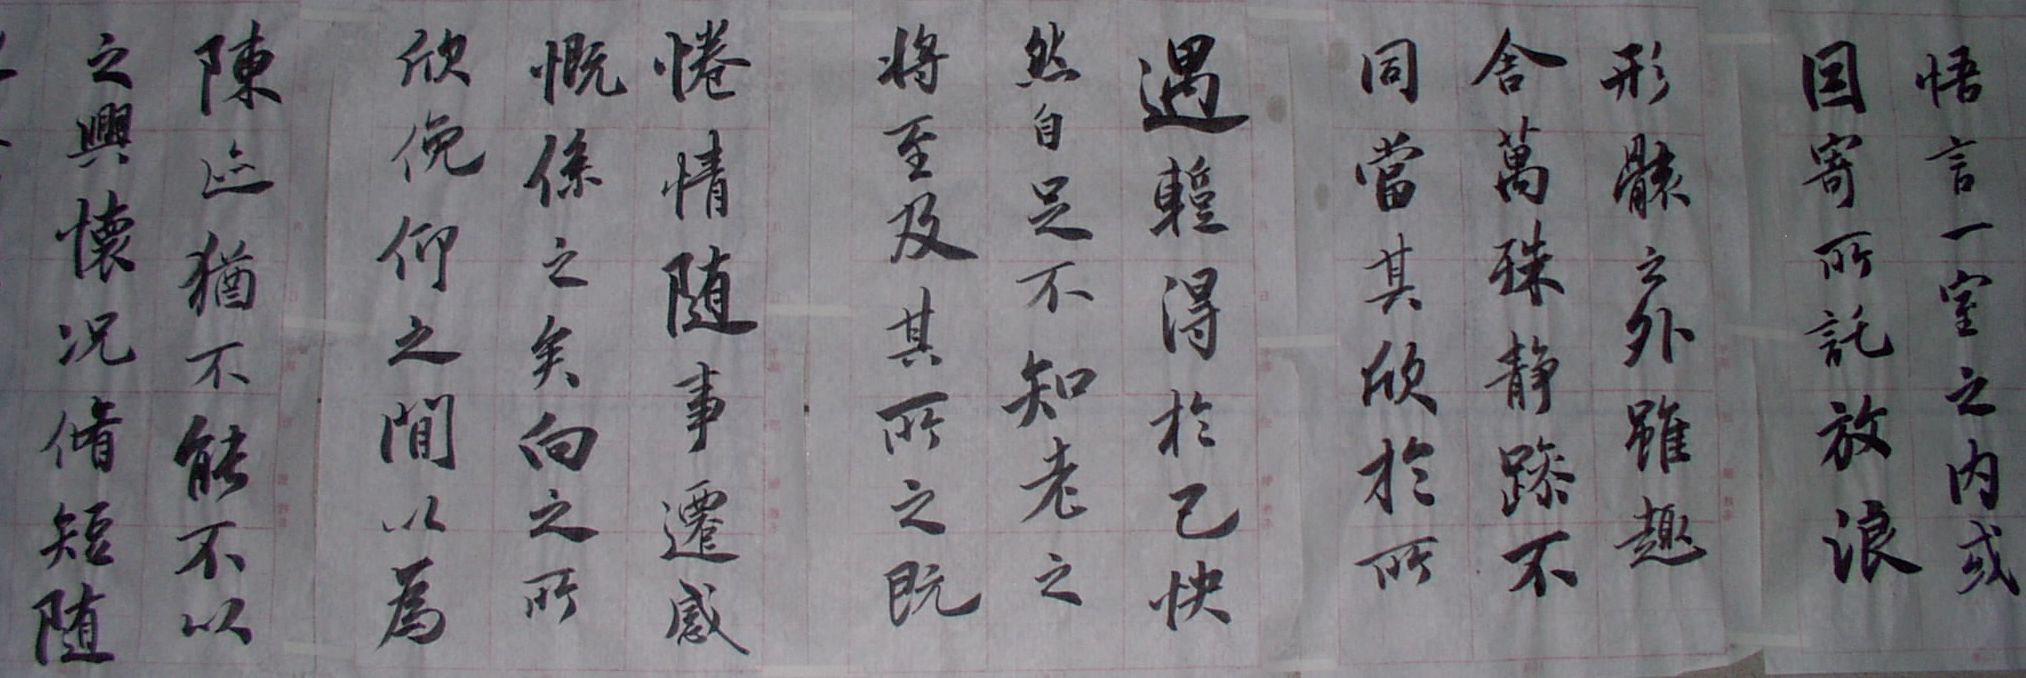 悟言一室之内或
因寄所託放浪
形骸之外雖趣
舍萬殊静躁不
同當其欣於所
遇輊得於己快
然自足不知老之
将至及其所之既
惓情随事遷感
慨係之矣向之所
欣俛仰之閒以為
陳迹猶不能不以
之興懷况脩短随